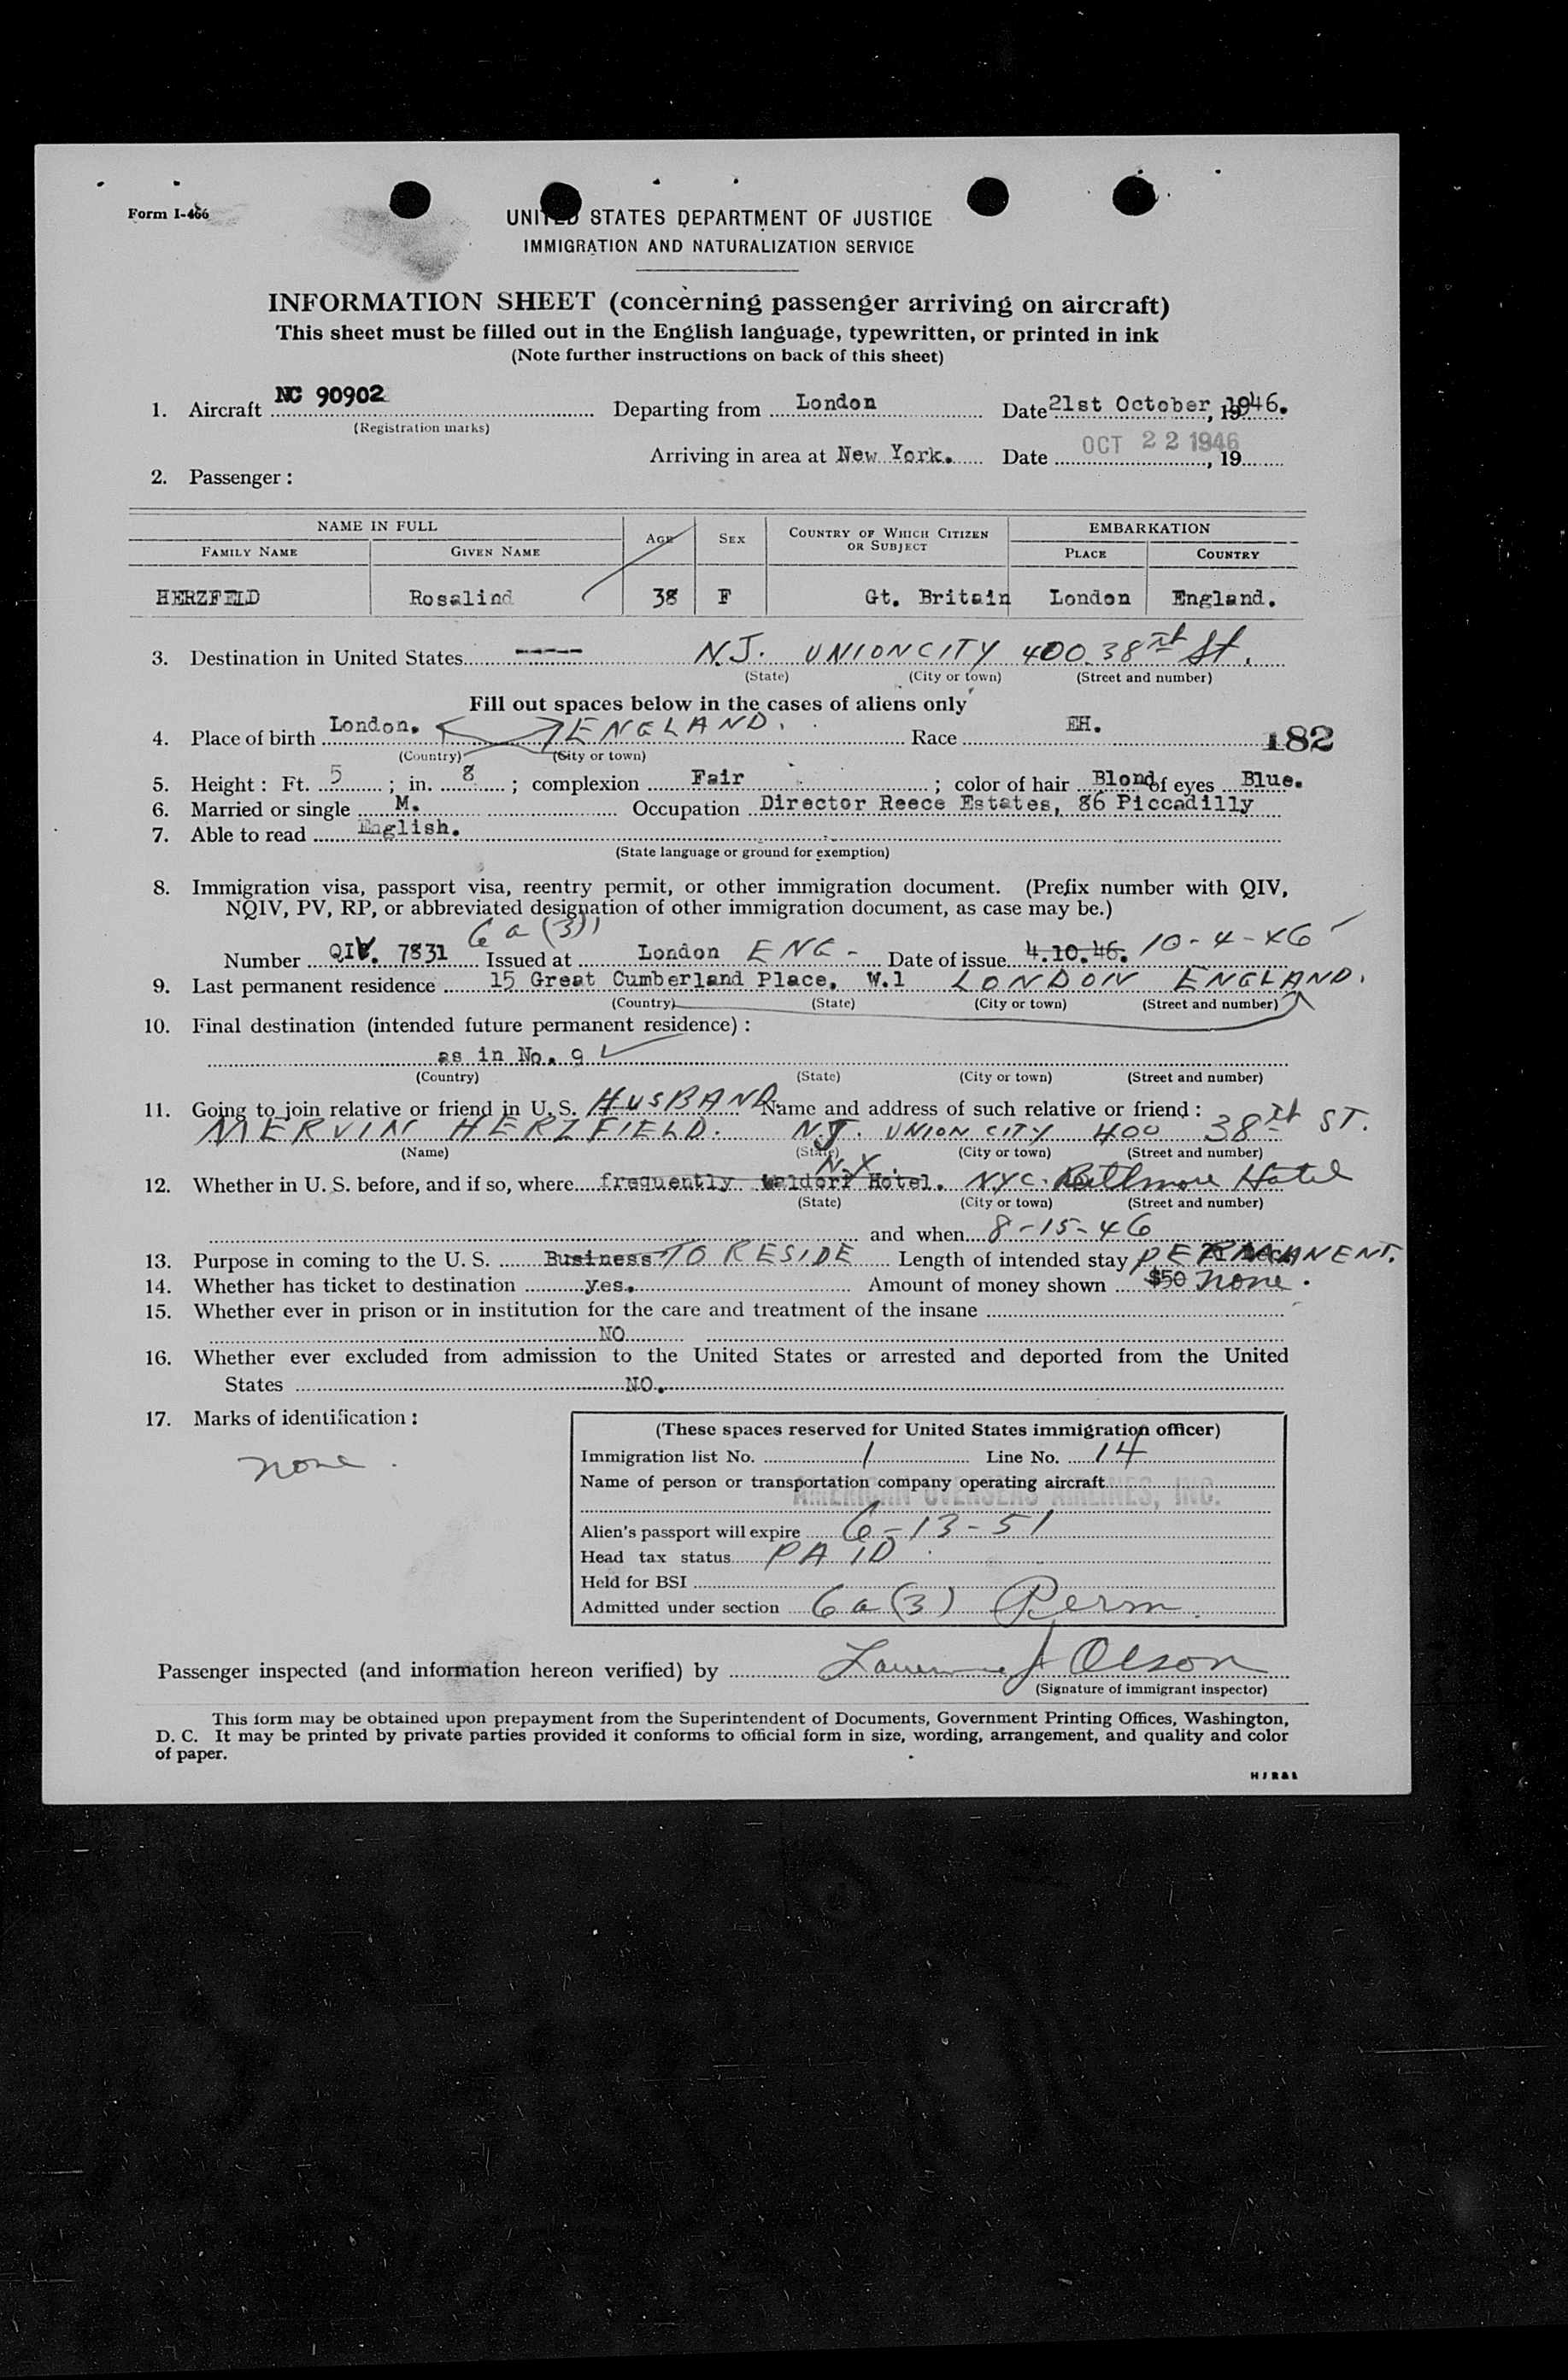 Form I-466
UNITED STATES DEPARTMENT OF JUSTICE
IMMIGRATION AND NATURALIZATION SERVICE
INFORMATION SHEET (concerning passenger arriving on aircraft)
This sheet must be filled out in the English language, typewritten, or printed in ink
(Note further instructions on back of this sheet)
1. Aircraft NC 90902 Departing from London Date 21st October, 1946.
(Registration marks)
Arriving in area at New York. Date OCT 22 1946, 19
2. Passenger:
NAME IN FULL AGE SEX COUNTRY OF WHICH CITIZEN OR SUBJECT EMBARKATION
FAMILY NAME GIVEN NAME PLACE COUNTRY
HERZFELD Rosalind 38 F Gt. Britain London England.
3. Destination in United States ---- N.J. UNION CITY 400 38th St.
(State) (City or town) (Street and number)
Fill out spaces below in the cases of aliens only
4. Place of birth London. ENGLAND. Race EH. 182
(Country) (City or town)
5. Height: Ft. 5; in. 8; complexion Fair; color of hair Blond of eyes Blue.
6. Married or single M. Occupation Director Reece Estates, 86 Piccadilly
7. Able to read English.
(State language or ground for exemption)
8. Immigration visa, passport visa, reentry permit, or other immigration document. (Prefix number with QIV,
NQIV, PV, RP, or abbreviated designation of other immigration document, as case may be.)
6a(3)
Number QIV. 7831 Issued at London ENG- Date of issue 4.10.46. 10-4-46
9. Last permanent residence 15 Great Cumberland Place, W.1 LONDON ENGLAND.
(Country) (State) (City or town) (Street and number)
10. Final destination (intended future permanent residence):
as in No. 9
(Country) (State) (City or town) (Street and number)
11. Going to join relative or friend in U.S. HUSBAND. Name and address of such relative or friend:
MERVIN HERZFIELD. N.J. UNION CITY 400 38th ST.
(Name) (State) (City or town) (Street and number)
12. Whether in U. S. before, and if so, where frequently Waldorf Hotel. N.Y. NYC. Biltmore Hotel
(State) (City or town) (Street and number)
and when 8-15-46
13. Purpose in coming to the U. S. Business TO RESIDE Length of intended stay PERMANENT.
14. Whether has ticket to destination yes. Amount of money shown $50 none.
15. Whether ever in prison or in institution for the care and treatment of the insane
NO
16. Whether ever excluded from admission to the United States or arrested and deported from the United
States NO.
17. Marks of identification:
none.
(These spaces reserved for United States immigration officer)
Immigration list No. 1 Line No. 14
Name of person or transportation company operating aircraft
AMERICAN OVERSEAS AIRLINES, INC.
Alien's passport will expire 6-13-51
Head tax status PAID
Held for BSI
Admitted under section 6a(3) Perm.
Passenger inspected (and information hereon verified) by J Olson
(Signature of immigrant inspector)
This form may be obtained upon prepayment from the Superintendent of Documents, Government Printing Offices, Washington,
D. C. It may be printed by private parties provided it conforms to official form in size, wording, arrangement, and quality and color
of paper.